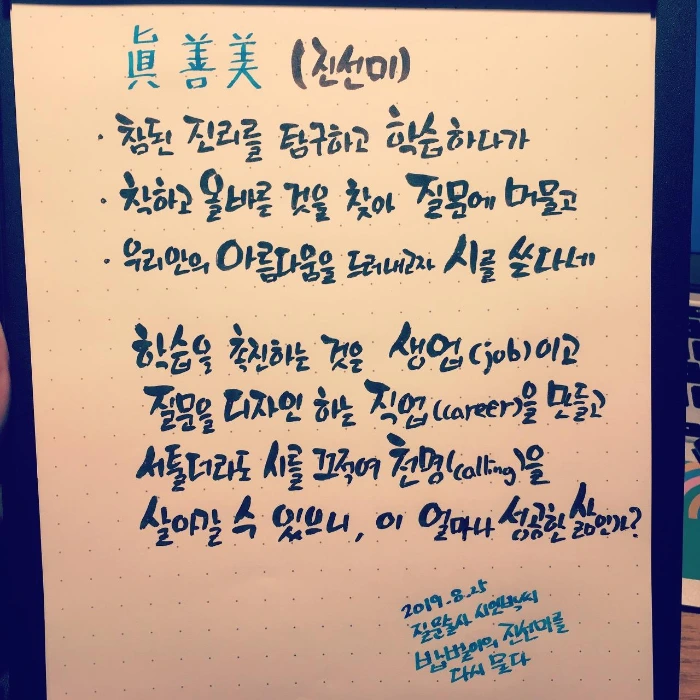 眞善美 (진선미)
· 참된 진리를 탐구하고 학습하다가
· 착하고 올바른 것을 찾아 질문에 머물고
· 우리안의 아름다움을 드러내고자 시를 쓴다네
학습을 촉진하는 것을 생업(job)이고
질문을 디자인 하는 직업(career)을 만들고
서툴더라도 시를 끄적여 천명(calling)을
살아갈 수 있으니, 이 얼마나 성공한 삶인가?
2019.8.25
질문술사 시인박씨
밥벌이의 진선미를
다시 묻다